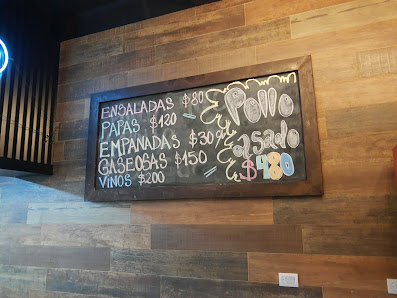 ENSALADAS $80
PAPAS $120
EMPANADAS $30%
GASEOSAS $150
VINOS $200
Pollo
asado
$480